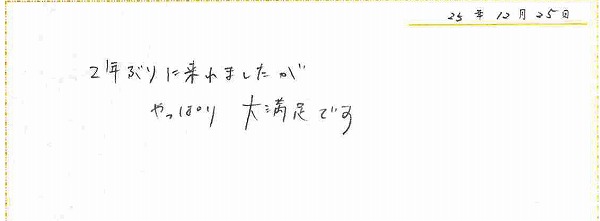 25年12月25日
2年ぶりに来れましたが
やっぱり 大満足です